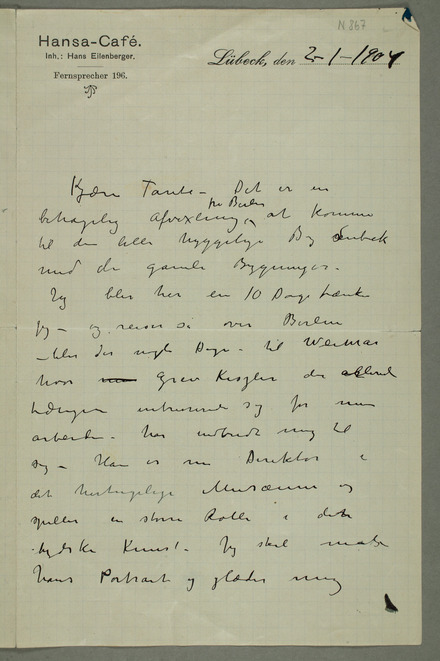 N 867
Hansa-Café.
Inh.: Hans Eilenberger.
Fernsprecher 196.
Lübeck, den 2-1-1904
Kjære Tante – Det er en
fra Berlin
behagelig Afvexling at komme
til den lille hyggelige By Lübeck
med de gamle Bygninger.
Jeg blir her en 10 Dage tænker
jeg – og reiser så over Berlin
– blir der nogle Dage – til Weimar
hvor Grev Kessler der allerede
længe interesserede sig for mine
arbeider – har indbudt mig til
sig – Han er nu Direktør i
det hertugelige Musæum og
spiller en større Rolle i det
tydske Kunst. Jeg skal male
hans Portræt og glæder mig